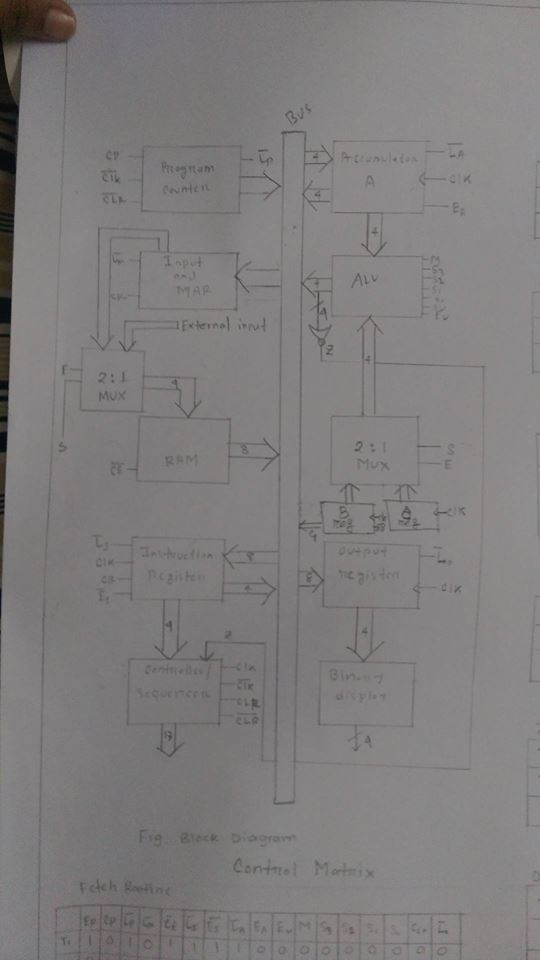 BUS
CP
C̅L̅K̅
C̅L̅R̅
Program
Counter
L̅P̅
4
4
Accumulator
A
L̅A̅
CLK
EA
4
Input
and
MAR
4
4
ALU
M
S3
S2
S1
Z
External input
4
E
2:1
MUX
4
S
RAM
8
C̅E̅
2:1
MUX
S
E̅
B
reg
C
reg
CLK
4
CLK
Instruction
Register
8
4
8
Output
register
CLK
4
Z
4
Controller/
sequencer
CLK
C̅L̅K̅
CLR
C̅L̅R̅
17
Binary
display
4
Fig: Block Diagram
Control Matrix
Fetch Routine
EP CP L̅P̅ EA EU M S3 S2 S1
T1 1 0 1 0 1 1 1 1 0 0 0 0 0 0 0 0 0